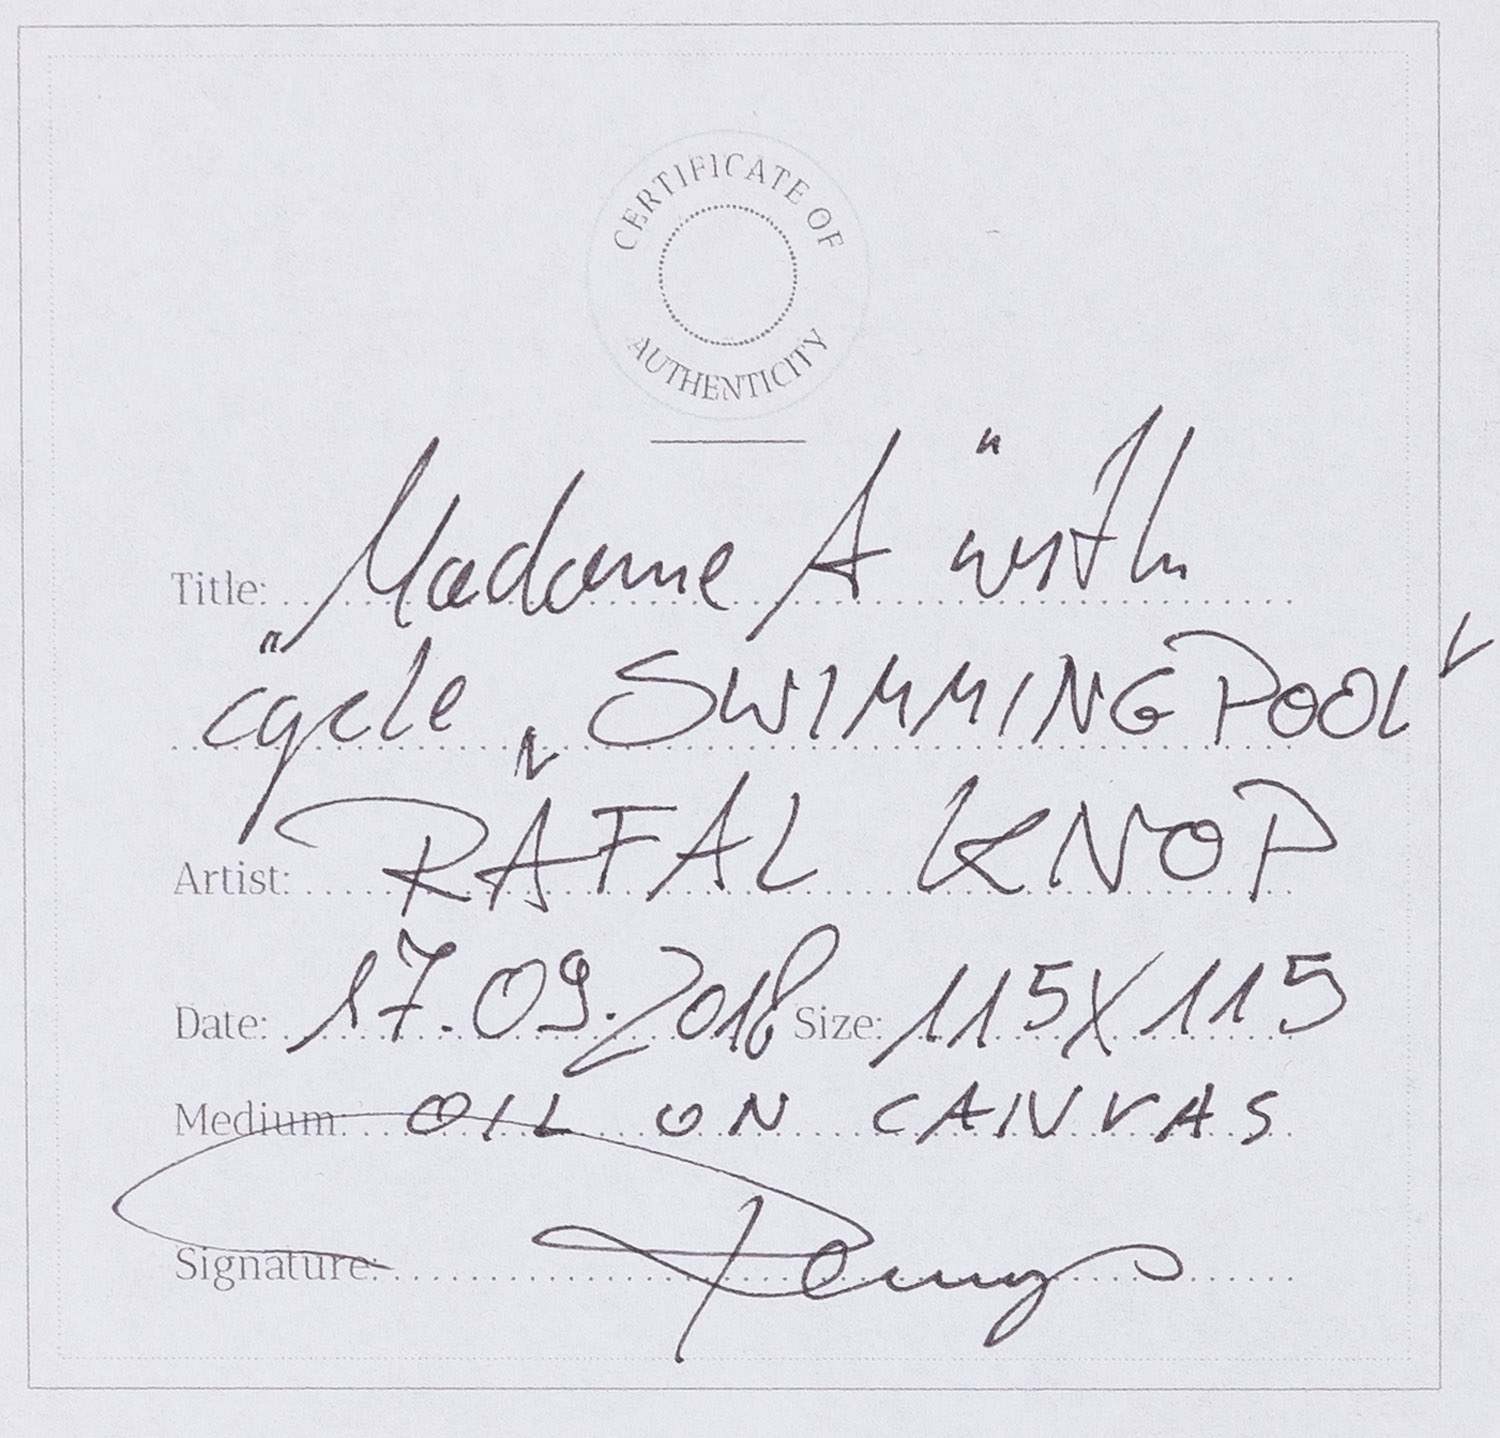 CERTIFICATE OF
AUTHENTICITY
Title: Madame A" with
"cycle „SWIMMING POOL"
Artist: RAFAL KNOP
Date: 17.09.2018 Size: 115X115
Medium: OIL ON CANVAS
Signature: